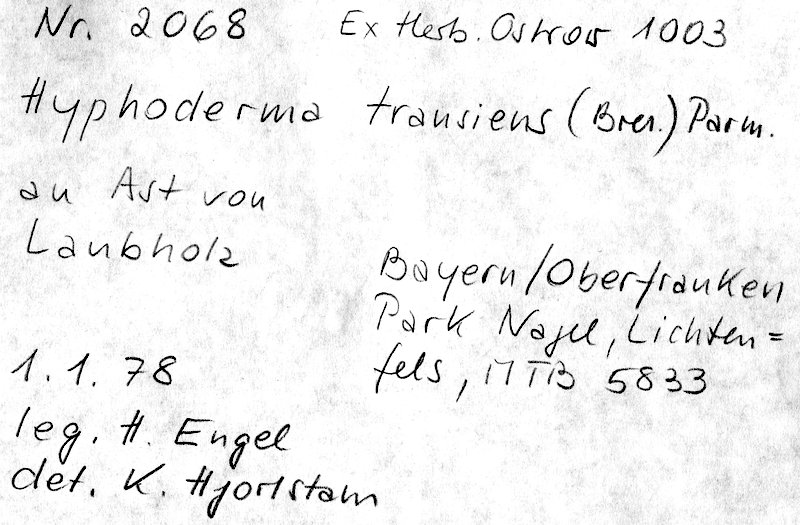 Nr. 2068 Ex Herb. Ostrow 1003
Hyphoderma transiens (Bres.) Parm.
an Ast von
Laubholz
Bayern/Oberfranken
Park Nagel, Lichten=
fels, MTB 5833
1.1.78
leg. H. Engel
det. K. Hjortstam